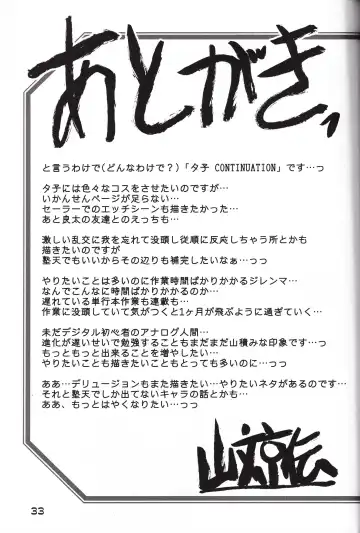 あとがきっ
と言うわけで(どんなわけで?)「夕子 CONTINUATION」です…っ
夕子には色々なコスをさせたいのですが…
いかんせんページが足らない…
セーラーでのエッチシーンも描きたかった…
あと良太の友達とのえっちも…
激しい乱交に我を忘れて没頭し従順に反応しちゃう所とかも
描きたいのですが
塾天でもいいからその辺りも補完したいなぁ…っっ
やりたいことは多いのに作業時間ばかりかかるジレンマ…
なんでこんなに時間ばかりかかるのか…
遅れている単行本作業も連載も…
作業に没頭していて気がつくと1ヶ月が飛ぶように過ぎていく…
未だデジタル初心者のアナログ人間…
進化が遅いせいで勉強することもまだまだ山積みな印象です…っ
もっともっと出来ることを増やしたい…
やりたいことも描きたいこともとっても多いのに…っっ
ああ…デリュージョンもまた描きたい…やりたいネタがあるのです…
それと塾天でしか出てないキャラの話とかも…
ああ、もっとはやくなりたい…っっ
山文京伝
33